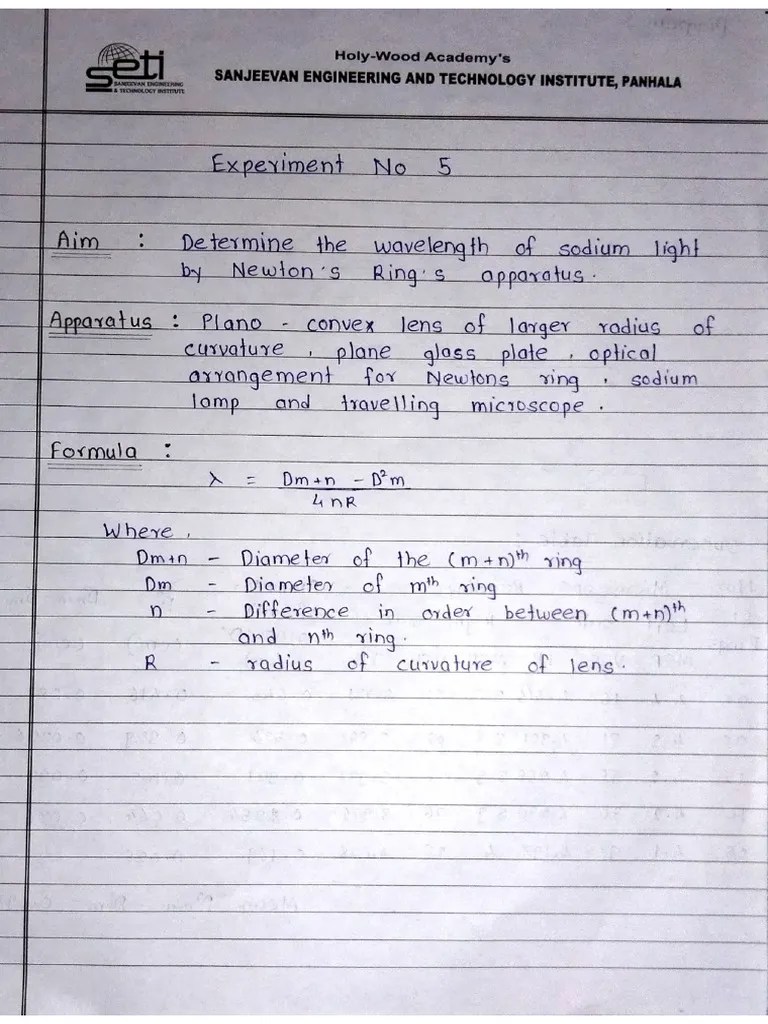 Seti
SANJEEVAN ENGINEERING
& TECHNOLOGY INSTITUTE
Holy-Wood Academy's
SANJEEVAN ENGINEERING AND TECHNOLOGY INSTITUTE, PANHALA
Experiment No 5
Aim : Determine the wavelength of sodium light
by Newton's Ring's apparatus.
Apparatus : Plano - convex lens of larger radius of
curvature, plane glass plate, optical
arrangement for Newtons ring, sodium
lamp and travelling microscope.
Formula :
λ = Dm+n - D²m
4nR
Where,
Dm+n - Diameter of the (m+n)th ring
Dm - Diameter of mth ring
n - Difference in order between (m+n)th
and nth ring.
R - radius of curvature of lens.